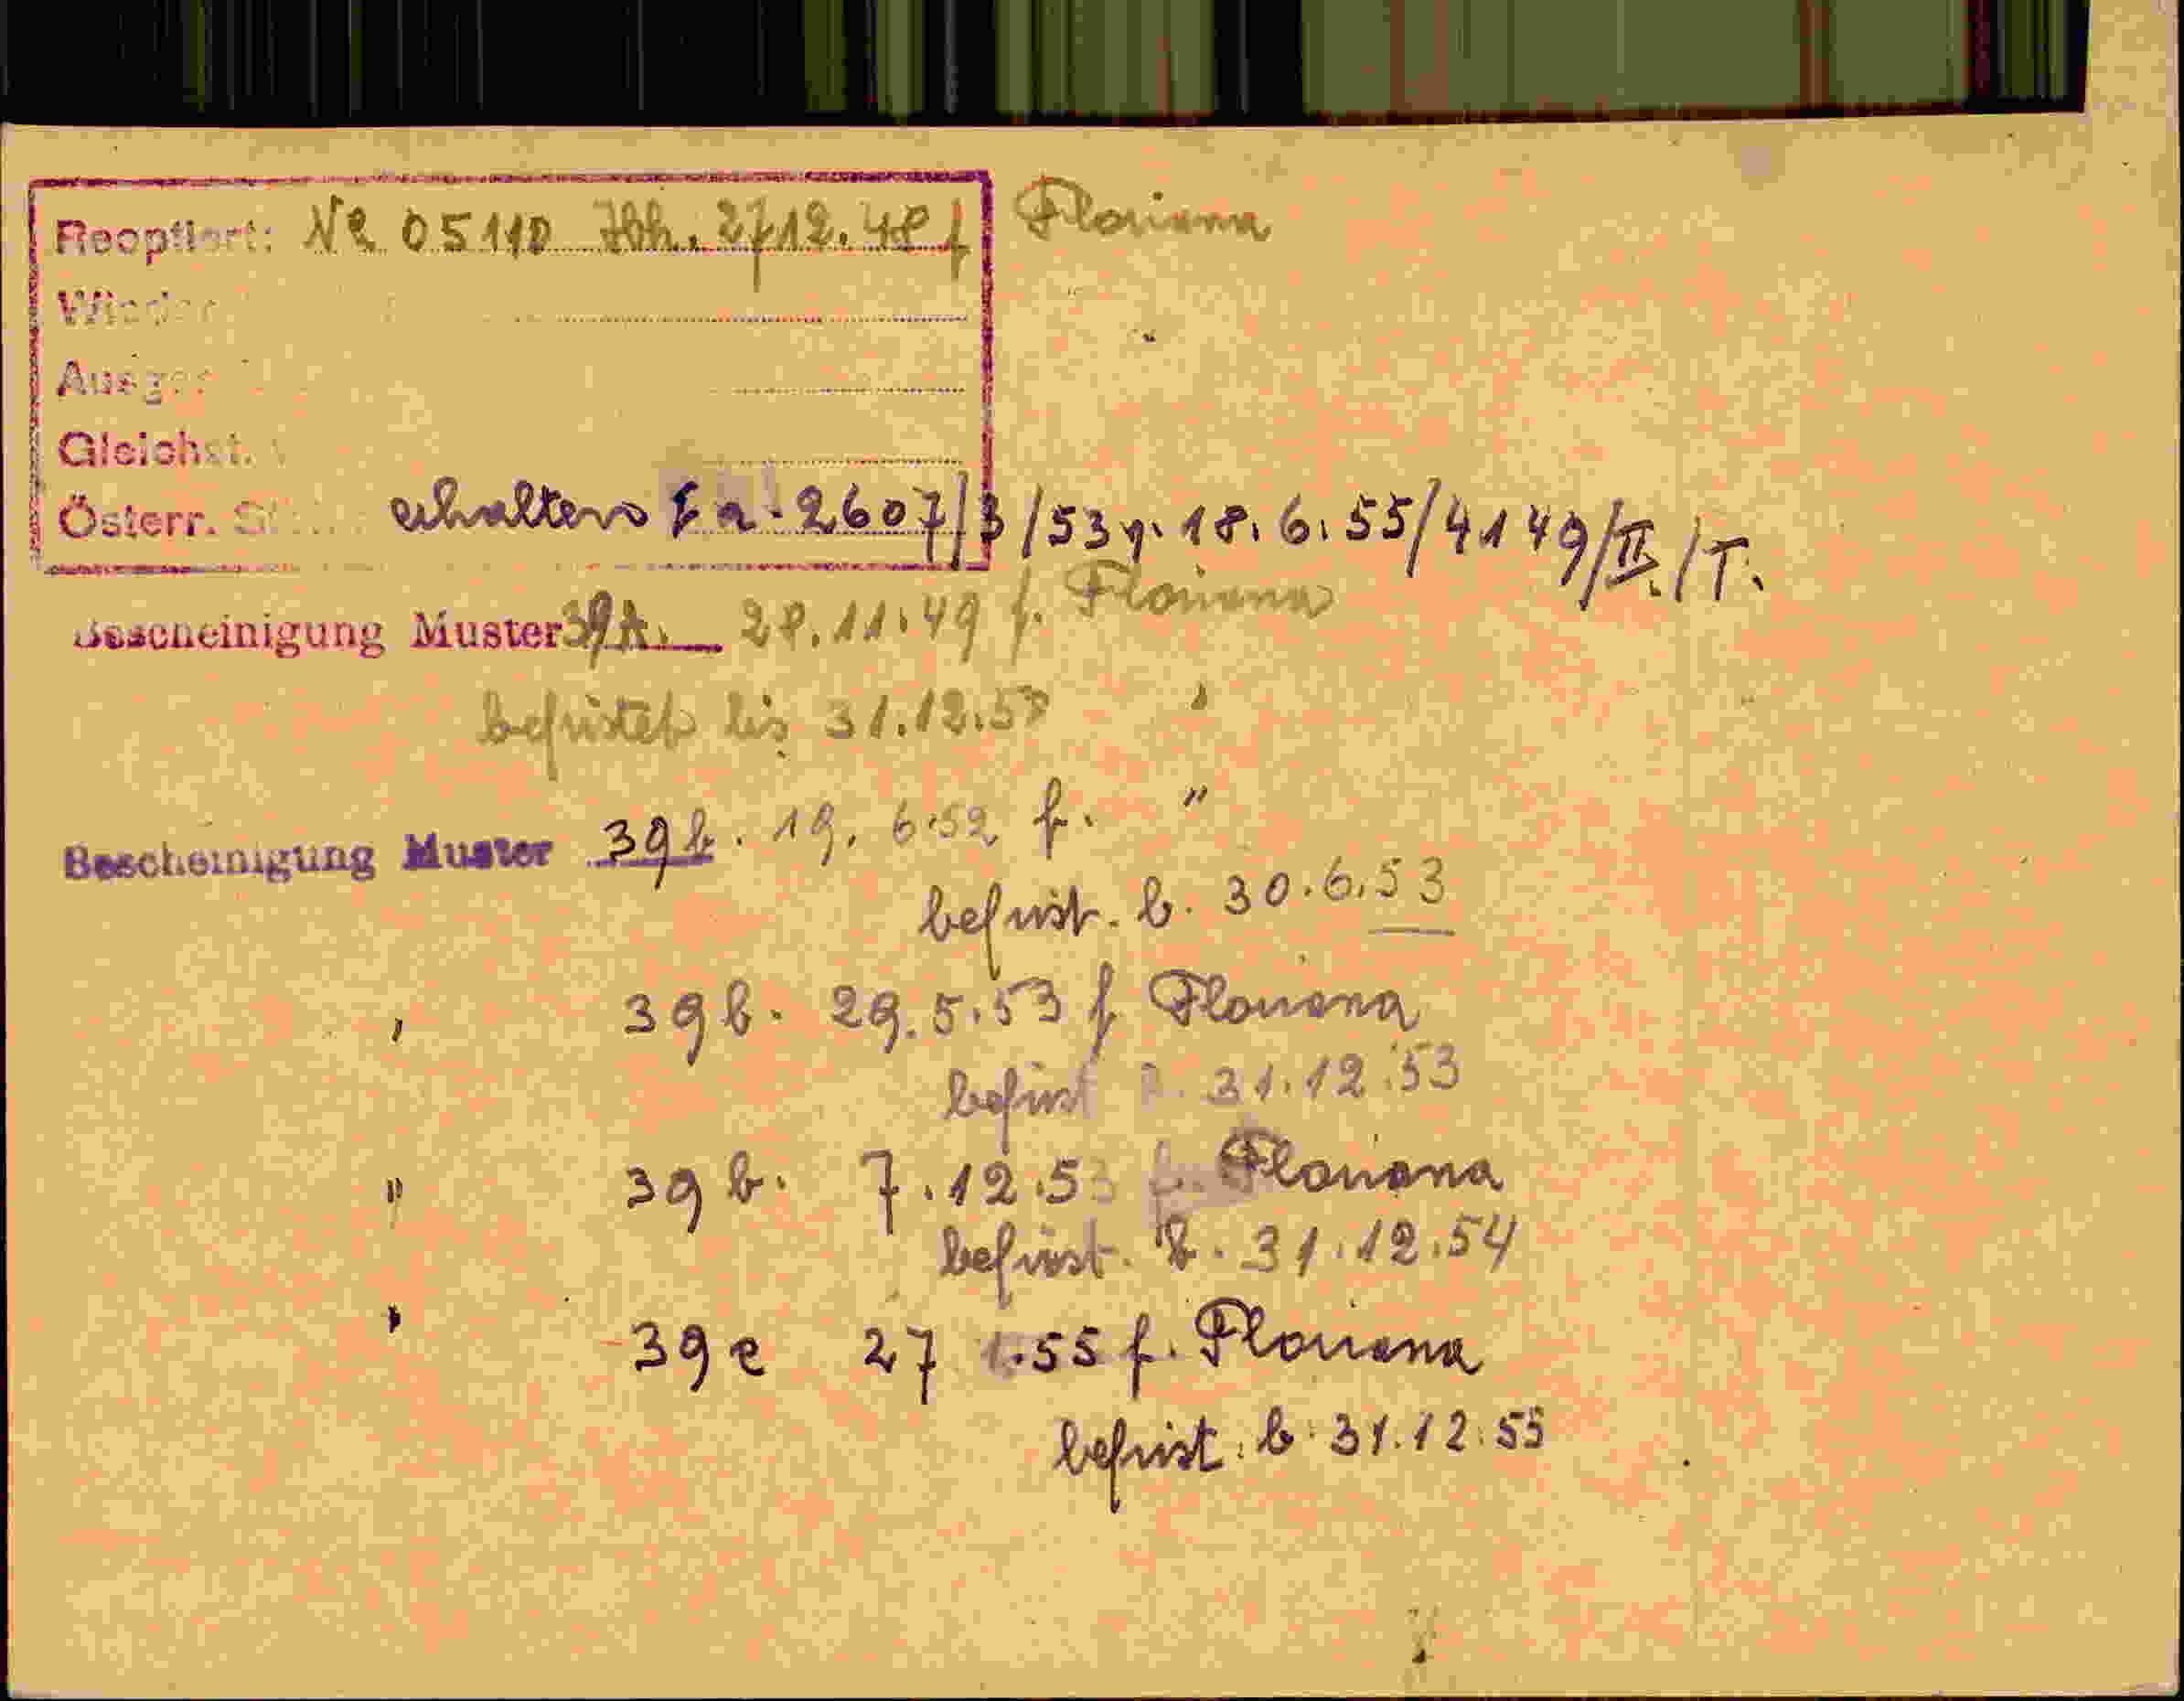 Reoptiert: No 05110 Jbk. 27.12.48 f Floriana
Wieder
Ausge
Gleichst.
Österr. St erhalten Ia-2607/3/53 v. 18.6.55/4149/II./T.
Bescheinigung Muster 39A. 28.11.49 f. Floriana
befristet bis 31.12.5 "
Bescheinigung Muster 39b. 19.6.52 f. "
befrist. b. 30.6.53
" 39b. 29.5.53 f Floriana
befrist . 31.12.53
" 39b. 7.12.53 f. Floriana
befrist. b. 31.12.54
" 39e 27 1.55 f. Floriana
befrist. b. 31.12.55